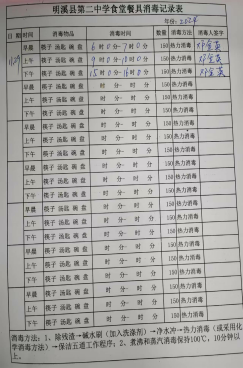 明溪县第二中学食堂餐具消毒记录表
年份: 2024
日期 时间 消毒物品 消毒时间 数量 消毒方法 消毒人签字
早晨 筷子 汤匙 碗 盘 6时0分-7时0分 150 热力消毒
上午 筷子 汤匙 碗 盘 9时0分-10时0分 150 热力消毒
下午 筷子 汤匙 碗 盘 15时0分-16时0分 150 热力消毒
早晨 筷子 汤匙 碗 盘 时 分- 时 分 150 热力消毒
上午 筷子 汤匙 碗 盘 时 分- 时 分 150 热力消毒
下午 筷子 汤匙 碗 盘 时 分- 时 分 150 热力消毒
早晨 筷子 汤匙 碗 盘 时 分- 时 分 150 热力消毒
上午 筷子 汤匙 碗 盘 时 分- 时 分 150 热力消毒
下午 筷子 汤匙 碗 盘 时 分- 时 分 150 热力消毒
早晨 筷子 汤匙 碗 盘 时 分- 时 分 150 热力消毒
上午 筷子 汤匙 碗 盘 时 分- 时 分 150 热力消毒
下午 筷子 汤匙 碗 盘 时 分- 时 分 150 热力消毒
早晨 筷子 汤匙 碗 盘 时 分- 时 分 150 热力消毒
上午 筷子 汤匙 碗 盘 时 分- 时 分 150 热力消毒
下午 筷子 汤匙 碗 盘 时 分- 时 分 150 热力消毒
早晨 筷子 汤匙 碗 盘 时 分- 时 分 150 热力消毒
上午 筷子 汤匙 碗 盘 时 分- 时 分 150 热力消毒
下午 筷子 汤匙 碗 盘 时 分- 时 分 150 热力消毒
早晨 筷子 汤匙 碗 盘 时 分- 时 分 150 热力消毒
上午 筷子 汤匙 碗 盘 时 分- 时 分 150 热力消毒
下午 筷子 汤匙 碗 盘 时 分- 时 分 150 热力消毒
消毒方法: 1、除残渣→碱水刷(加入洗涤剂)→净水冲→热力消毒(或采用化
学消毒方法)→保洁五道工作程序; 2、煮沸和蒸汽消毒保持100℃, 10分钟以
上。